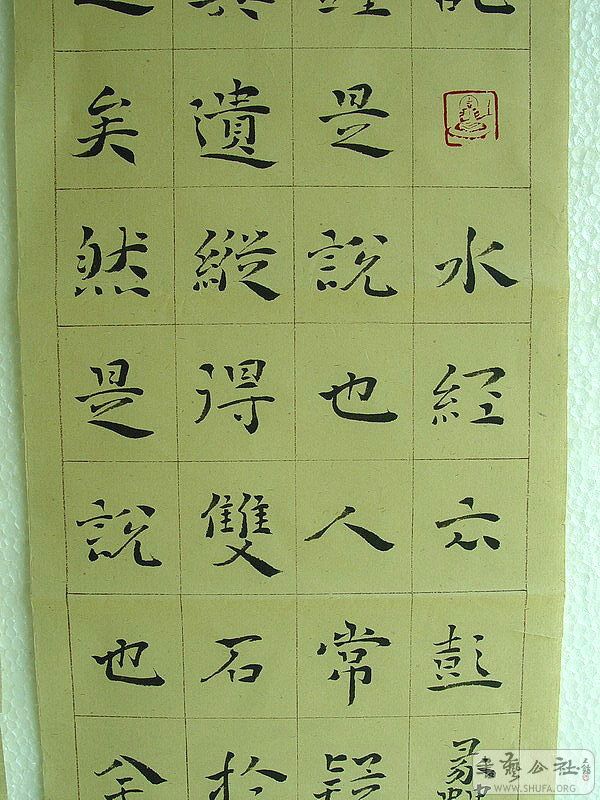 記水經云彭蠡
鐘是說也人常疑
其遺縱得雙石於
之矣然是說也余
書藝公社
WWW.SHUFA.ORG